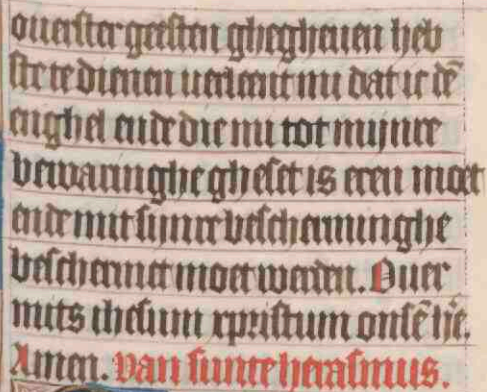 ouerster geesten ghegheuen heb
ste te dienen uerleent mi dat ic dē
enghel ende die mi tot mijnre
bewaringhe gheset is eren moet
ende mit sijnre beschermmghe
beschermet moet werden. Ouer
mits ihesum xpristum onsē he̅.
Amen. Van sunte herasmus.